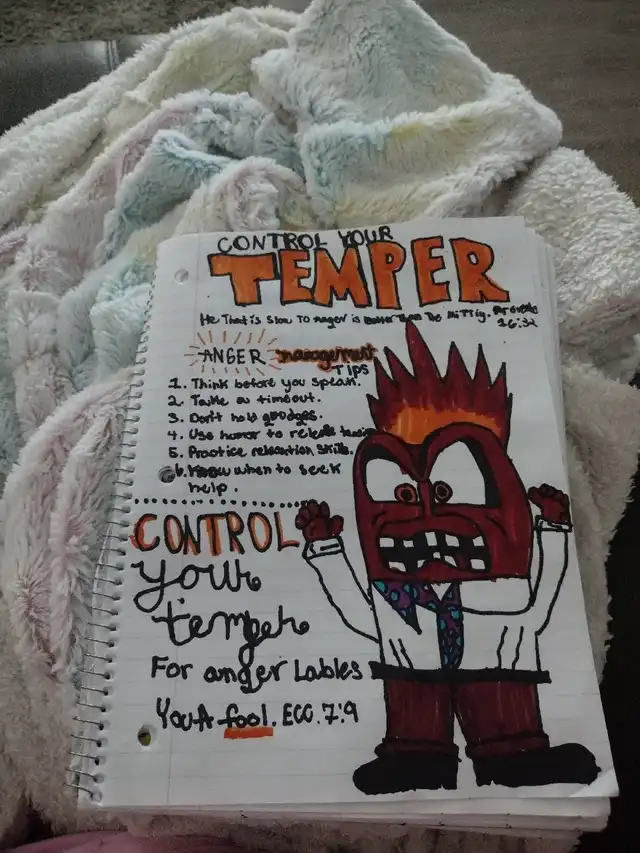 CONTROL YOUR
TEMPER
He That is Slow To anger is Better Than The Mittig. Proverbs
16:32
ANGER management
TIPS
1. Think before you speak.
2. Take a timeout.
3. Don't hold grudges.
4. Use humor to release tension
5. Practice relaxation skills.
6. Know when to seek
help.
CONTROL
your
temper
For anger Lables
You A fool. ECC. 7:9